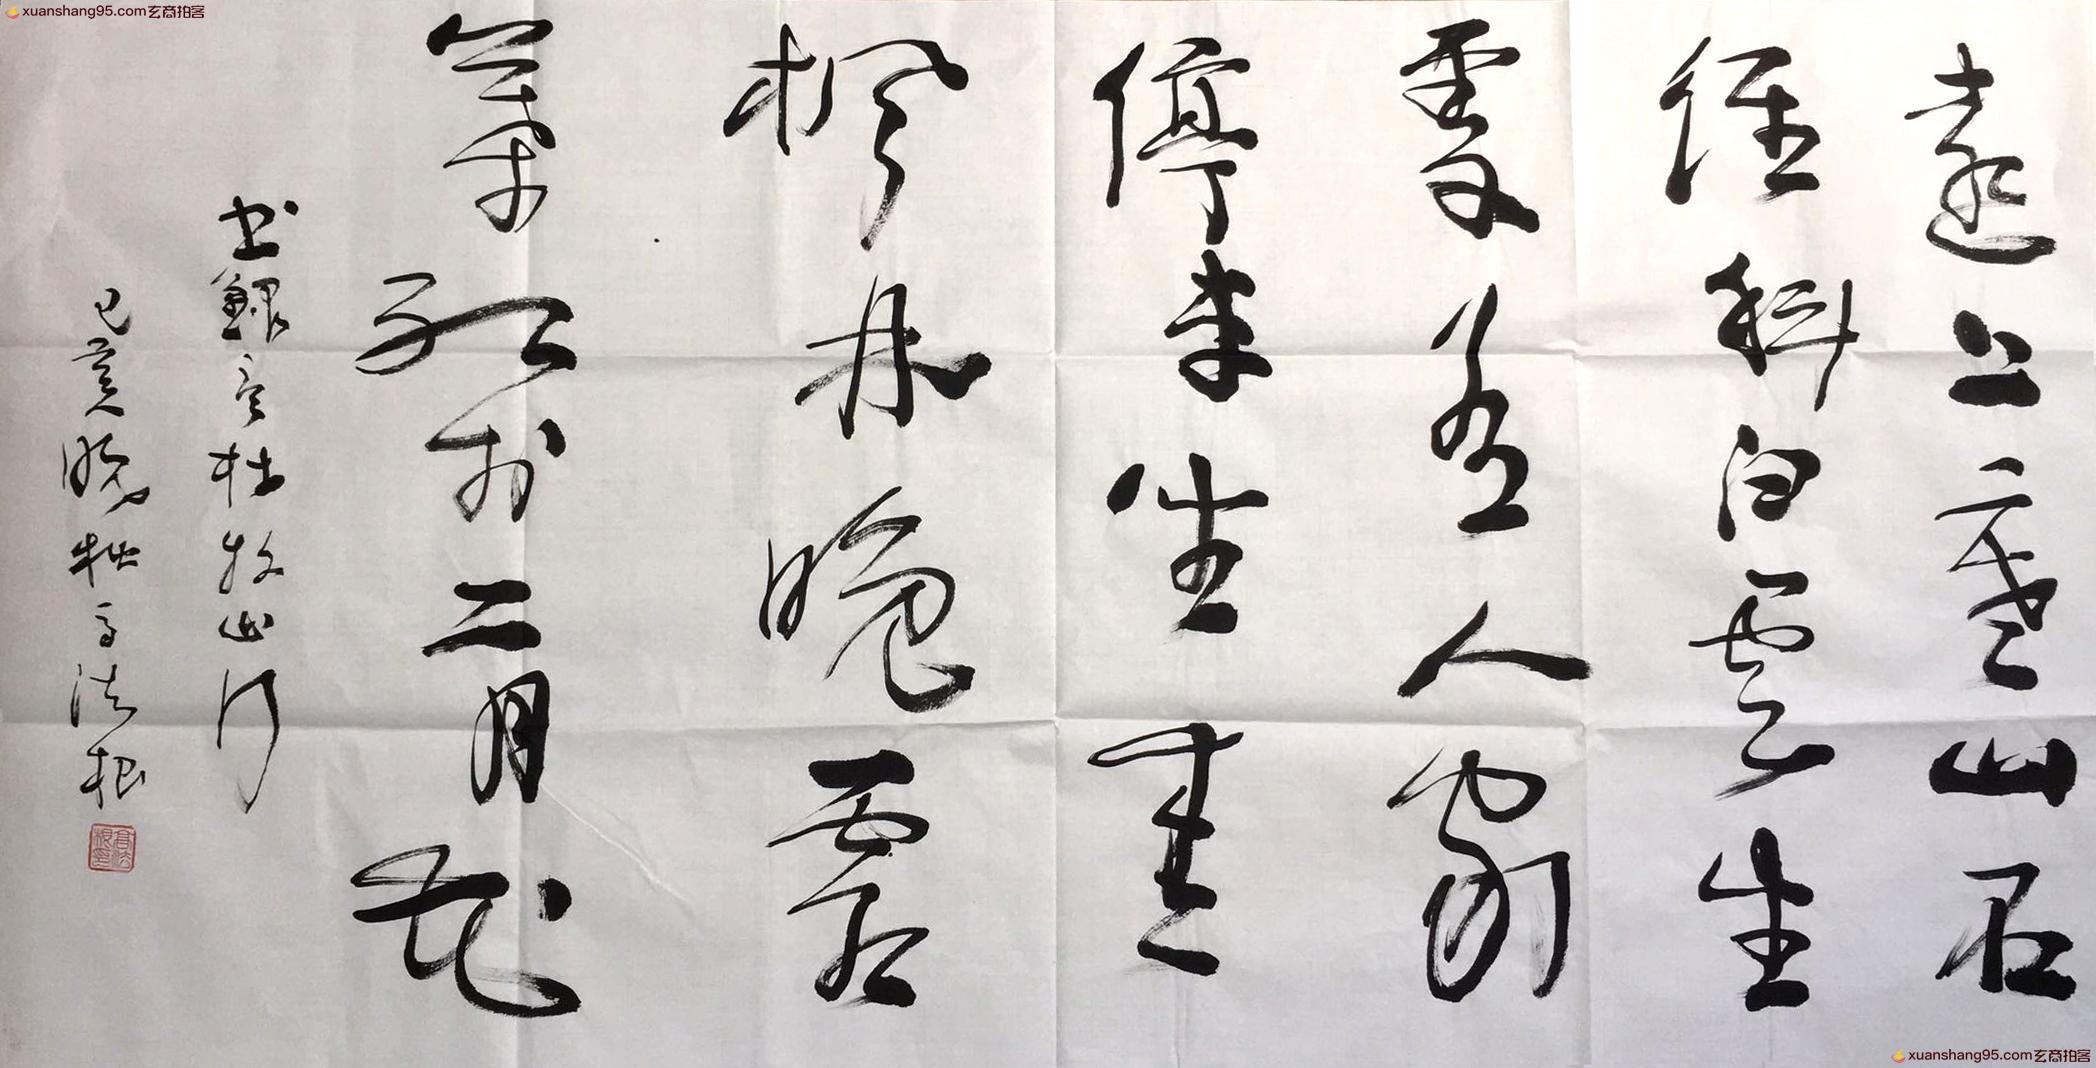 xuanshang95.com玄商拍客
遠上寒山石
徑斜白雲生
處有人家
停車坐愛
楓林晚霜
葉紅於二月花
书録唐杜牧山行
己亥 高法根
xuanshang95.com玄商拍客